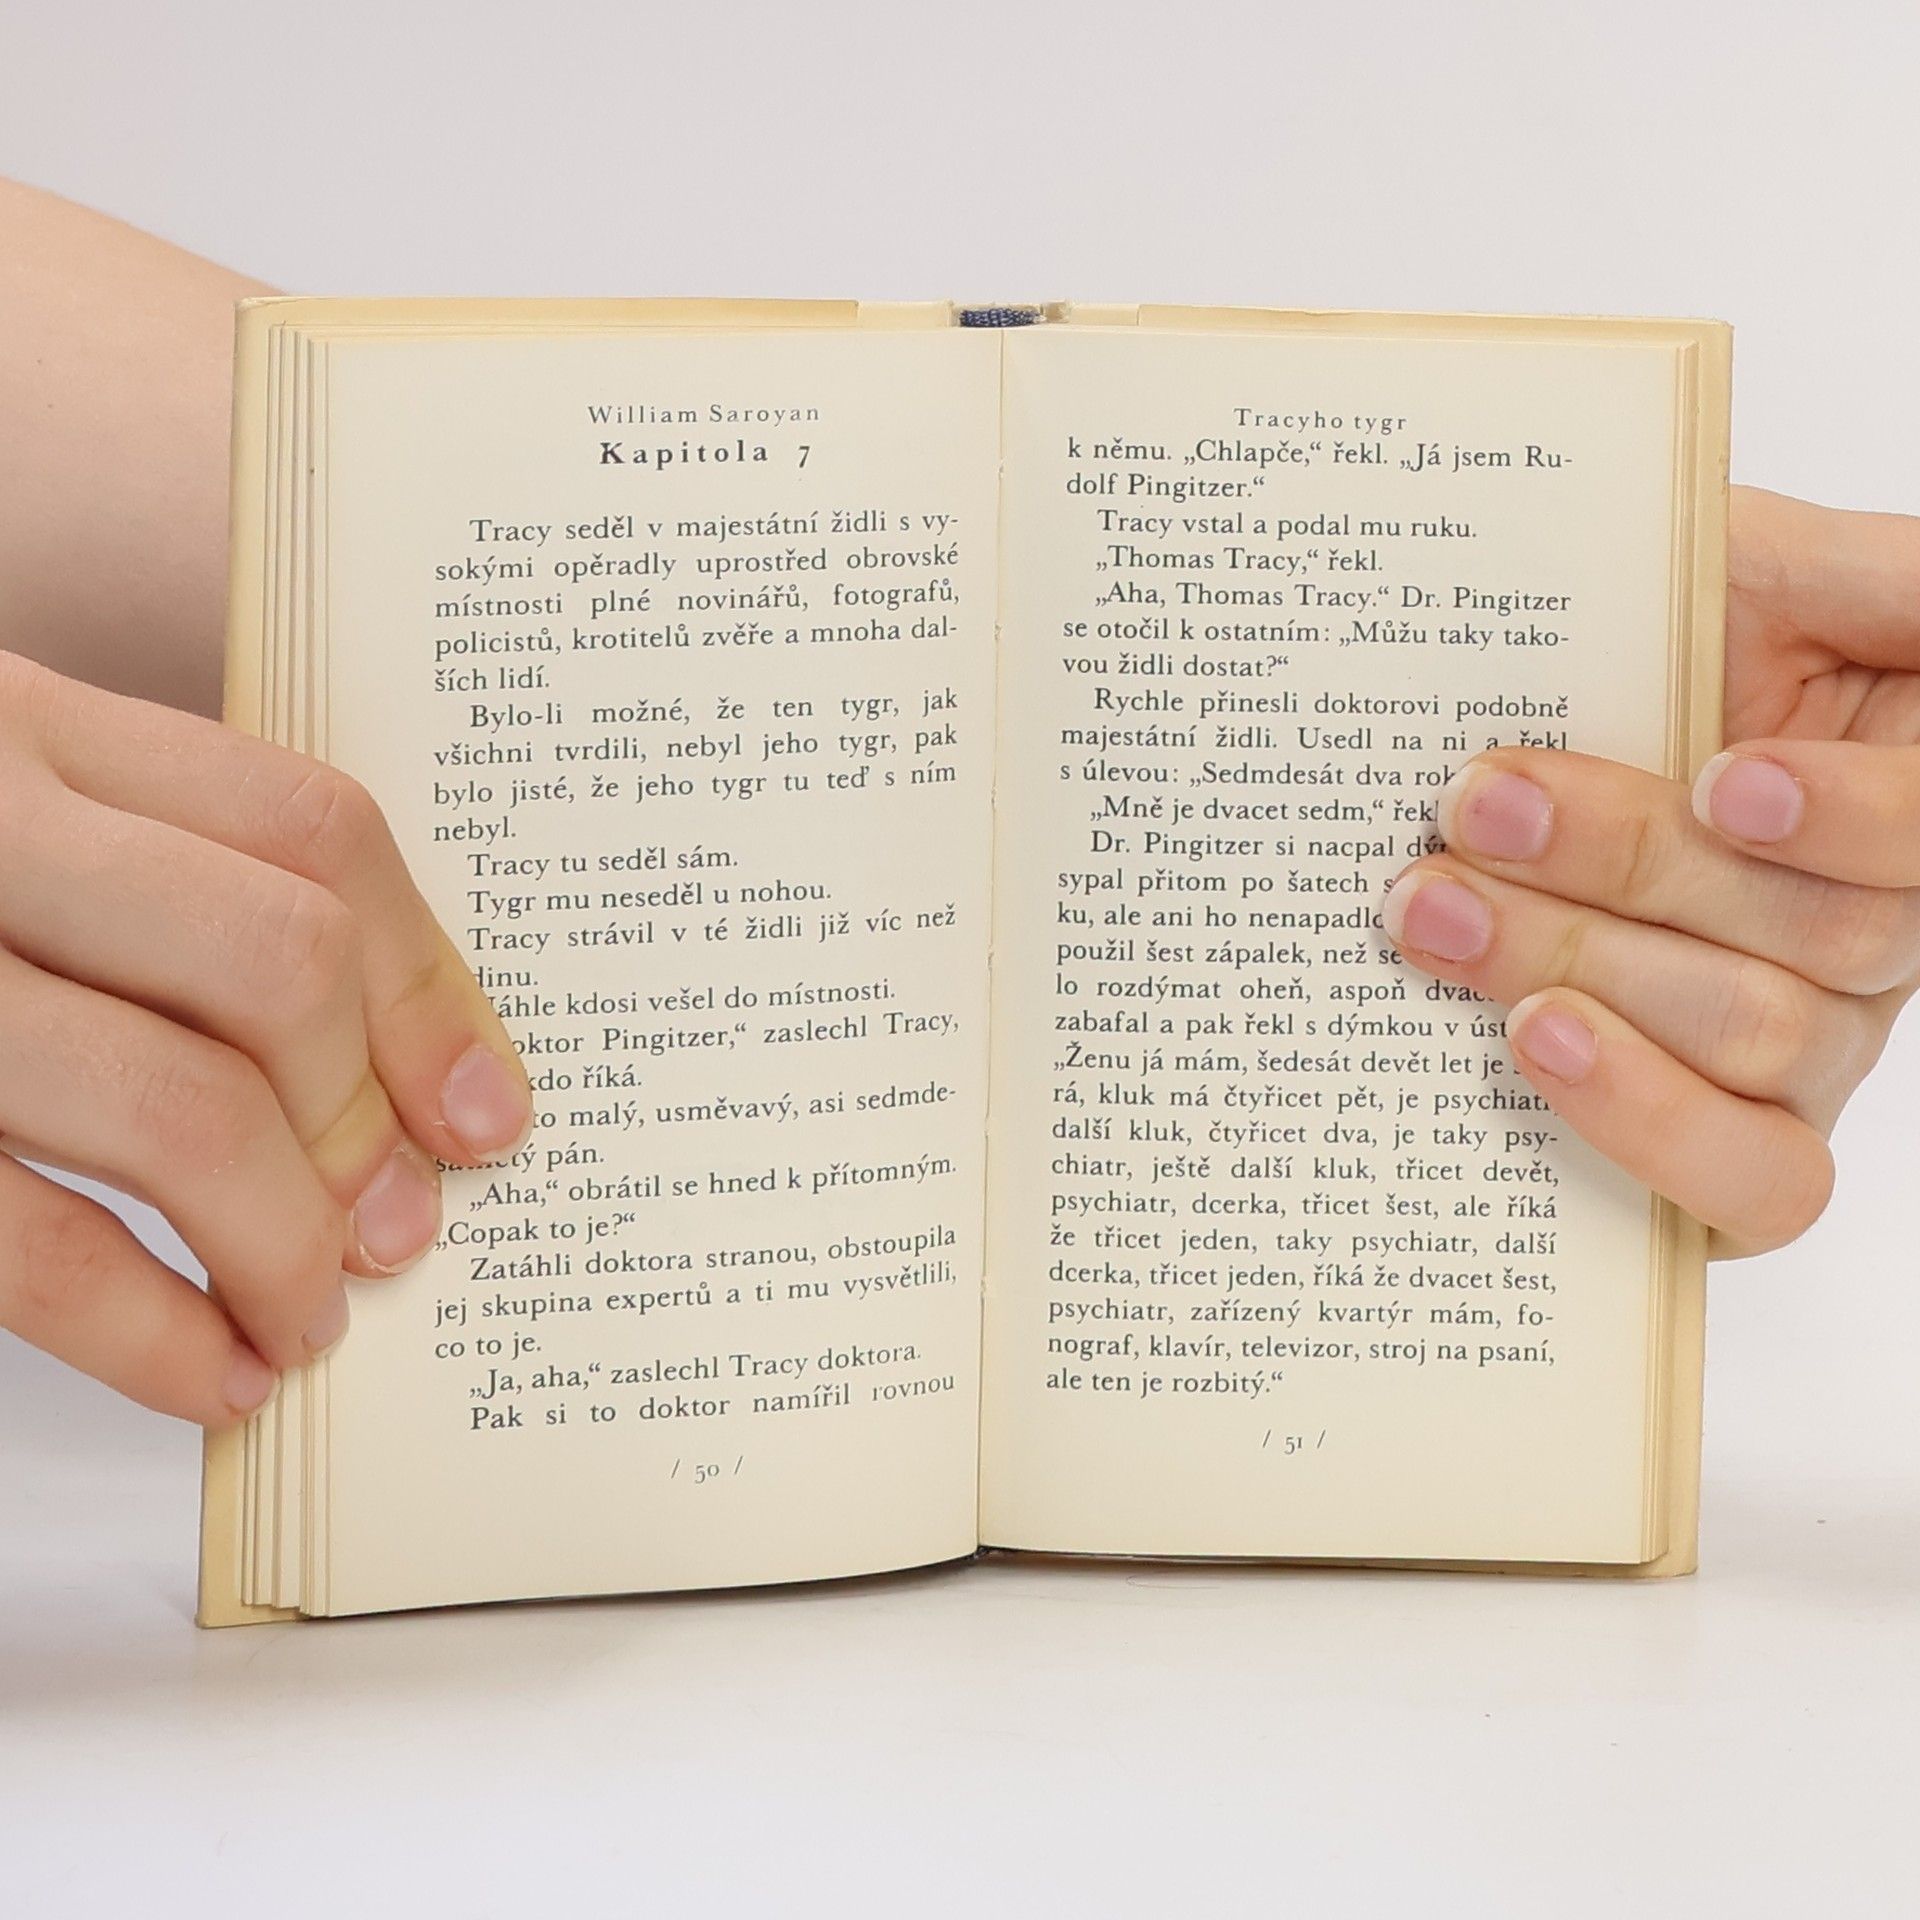 William Saroyan
Kapitola 7
Tracy seděl v majestátní židli s vy-
sokými opěradly uprostřed obrovské
místnosti plné novinářů, fotografů,
policistů, krotitelů zvěře a mnoha dal-
ších lidí.
Bylo-li možné, že ten tygr, jak
všichni tvrdili, nebyl jeho tygr, pak
bylo jisté, že jeho tygr tu teď s ním
nebyl.
Tracy tu seděl sám.
Tygr mu neseděl u nohou.
Tracy strávil v té židli již víc než
kdosi vešel do místnosti.
Pingitzer,“ zaslechl Tracy,
říká.
malý, usměvavý, asi sedmde-
pán.
„Aha,“ obrátil se hned k přítomným.
„Copak to je?“
Zatáhli doktora stranou, obstoupila
jej skupina expertů a ti mu vysvětlili,
co to je.
„Ja, aha,“ zaslechl Tracy doktora.
Pak si to doktor namířil rovnou
/ 50 /
Tracyho tygr
k němu. „Chlapče,“ řekl. „Já jsem Ru-
dolf Pingitzer.“
Tracy vstal a podal mu ruku.
„Thomas Tracy,“ řekl.
„Aha, Thomas Tracy.“ Dr. Pingitzer
se otočil k ostatním: „Můžu taky tako-
vou židli dostat?“
Rychle přinesli doktorovi podobně
majestátní židli. Usedl na ni a řekl
s úlevou: „Sedmdesát dva
„Mně je dvacet sedm,“
Dr. Pingitzer si nacpal
sypal přitom po šatech
ku, ale ani ho
použil šest zápalek, než
lo rozdýmat oheň, aspoň
zabafal a pak řekl s dýmkou v
„Ženu já mám, šedesát devět let je
rá, kluk má čtyřicet pět, je
další kluk, čtyřicet dva, je taky psy-
chiatr, ještě další kluk, třicet devět,
psychiatr, dcerka, třicet šest, ale říká
že třicet jeden, taky psychiatr, další
dcerka, třicet jeden, říká že dvacet šest,
psychiatr, zařízený kvartýr mám, fo-
nograf, klavír, televizor, stroj na psaní,
ale ten je rozbitý.“
/ 51 /